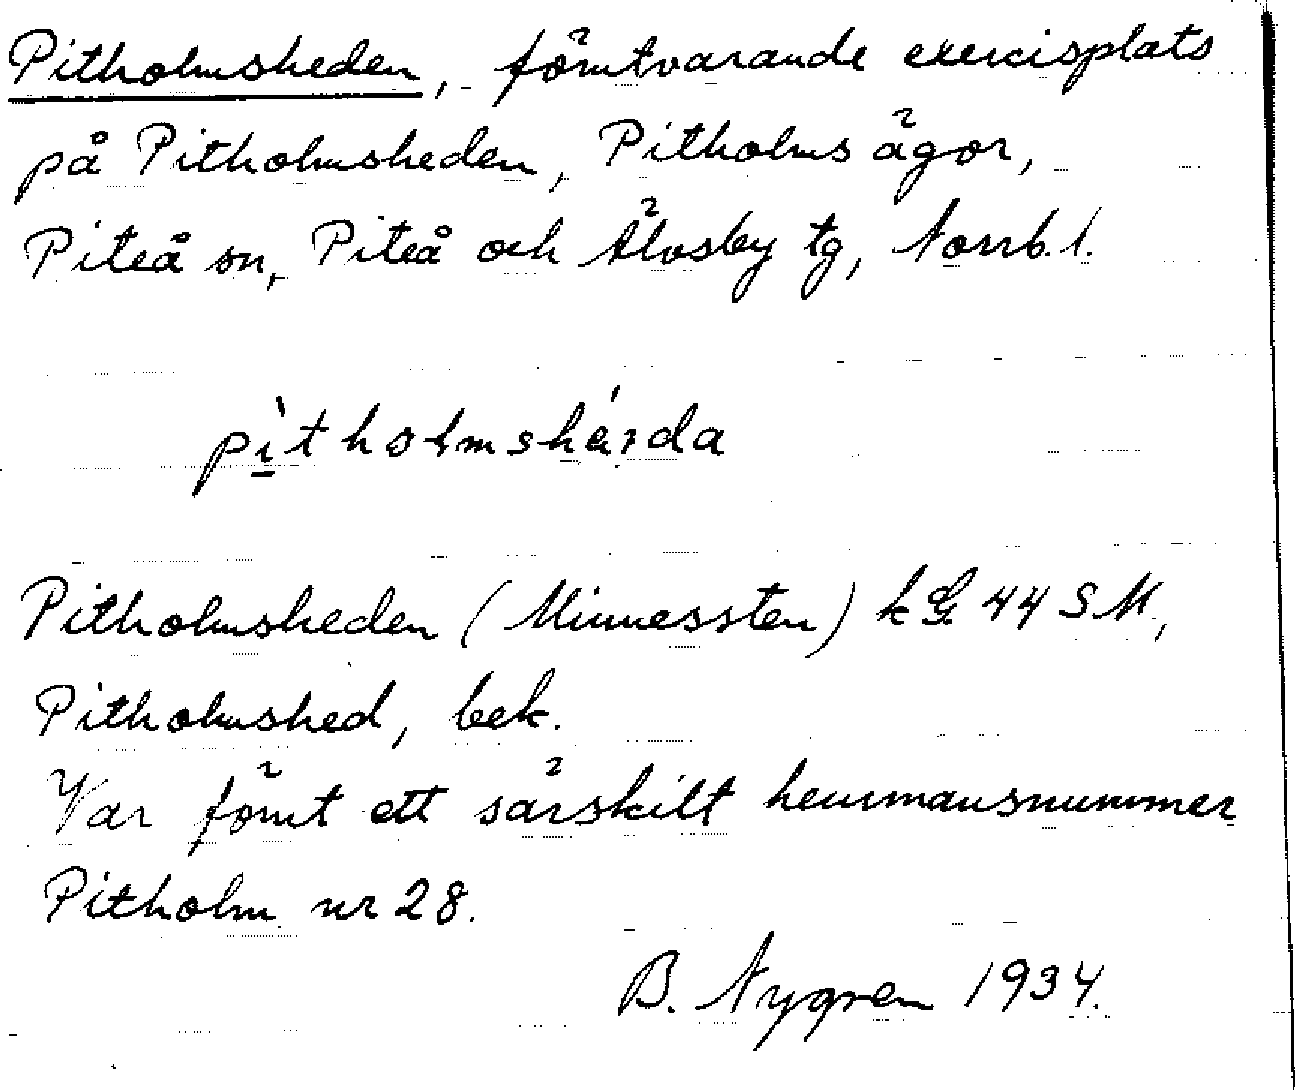 Pitholmsheden, förutvarande exercisplats
på Pitholmsheden, Pitholms ägor,
Piteå sn, Piteå och Älvsby tg, Norrb. l.
pitholmshéda
Pitholmsheden (Minnessten) k G 44 SM,
Pitholmshed, bek.
Var förut ett särskilt hemmansnummer
Pitholm nr 28.
B. Nygren 1934.